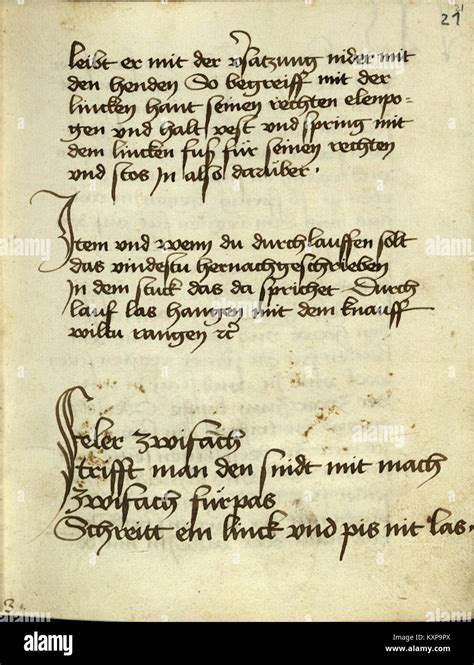 21
21
leibt er mit der vsatzung nider mit
den henden So begreiff mit der
lincken hant seinen rechten elenpo-
gen vnd halt vest vnd spring mit
dem lincken fuß für seinen rechten
vnd stos in also darüber .
Item vnd wenn du durchlauffen solt
das vindestu hernachgeschrieben
In dem stuck das da sprichet Durch
lauf las hangen mit dem knauff
wiltu rangen rc
Feler zwifach
trifft man den snidt mit mach
Zwifach fürpas
Schreitt ein linck vnd pis nit las .
alamy
Image ID: KXP9PX
www.alamy.com